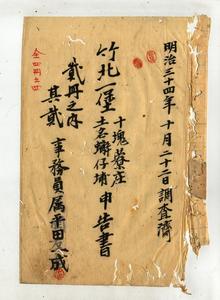 明治三十四年十月二十二日調查濟
竹北一堡
十塊藔庄
土名蠏仔埔
申告書
貳冊之內
其貳
事務員属平田
成
全四冊之四